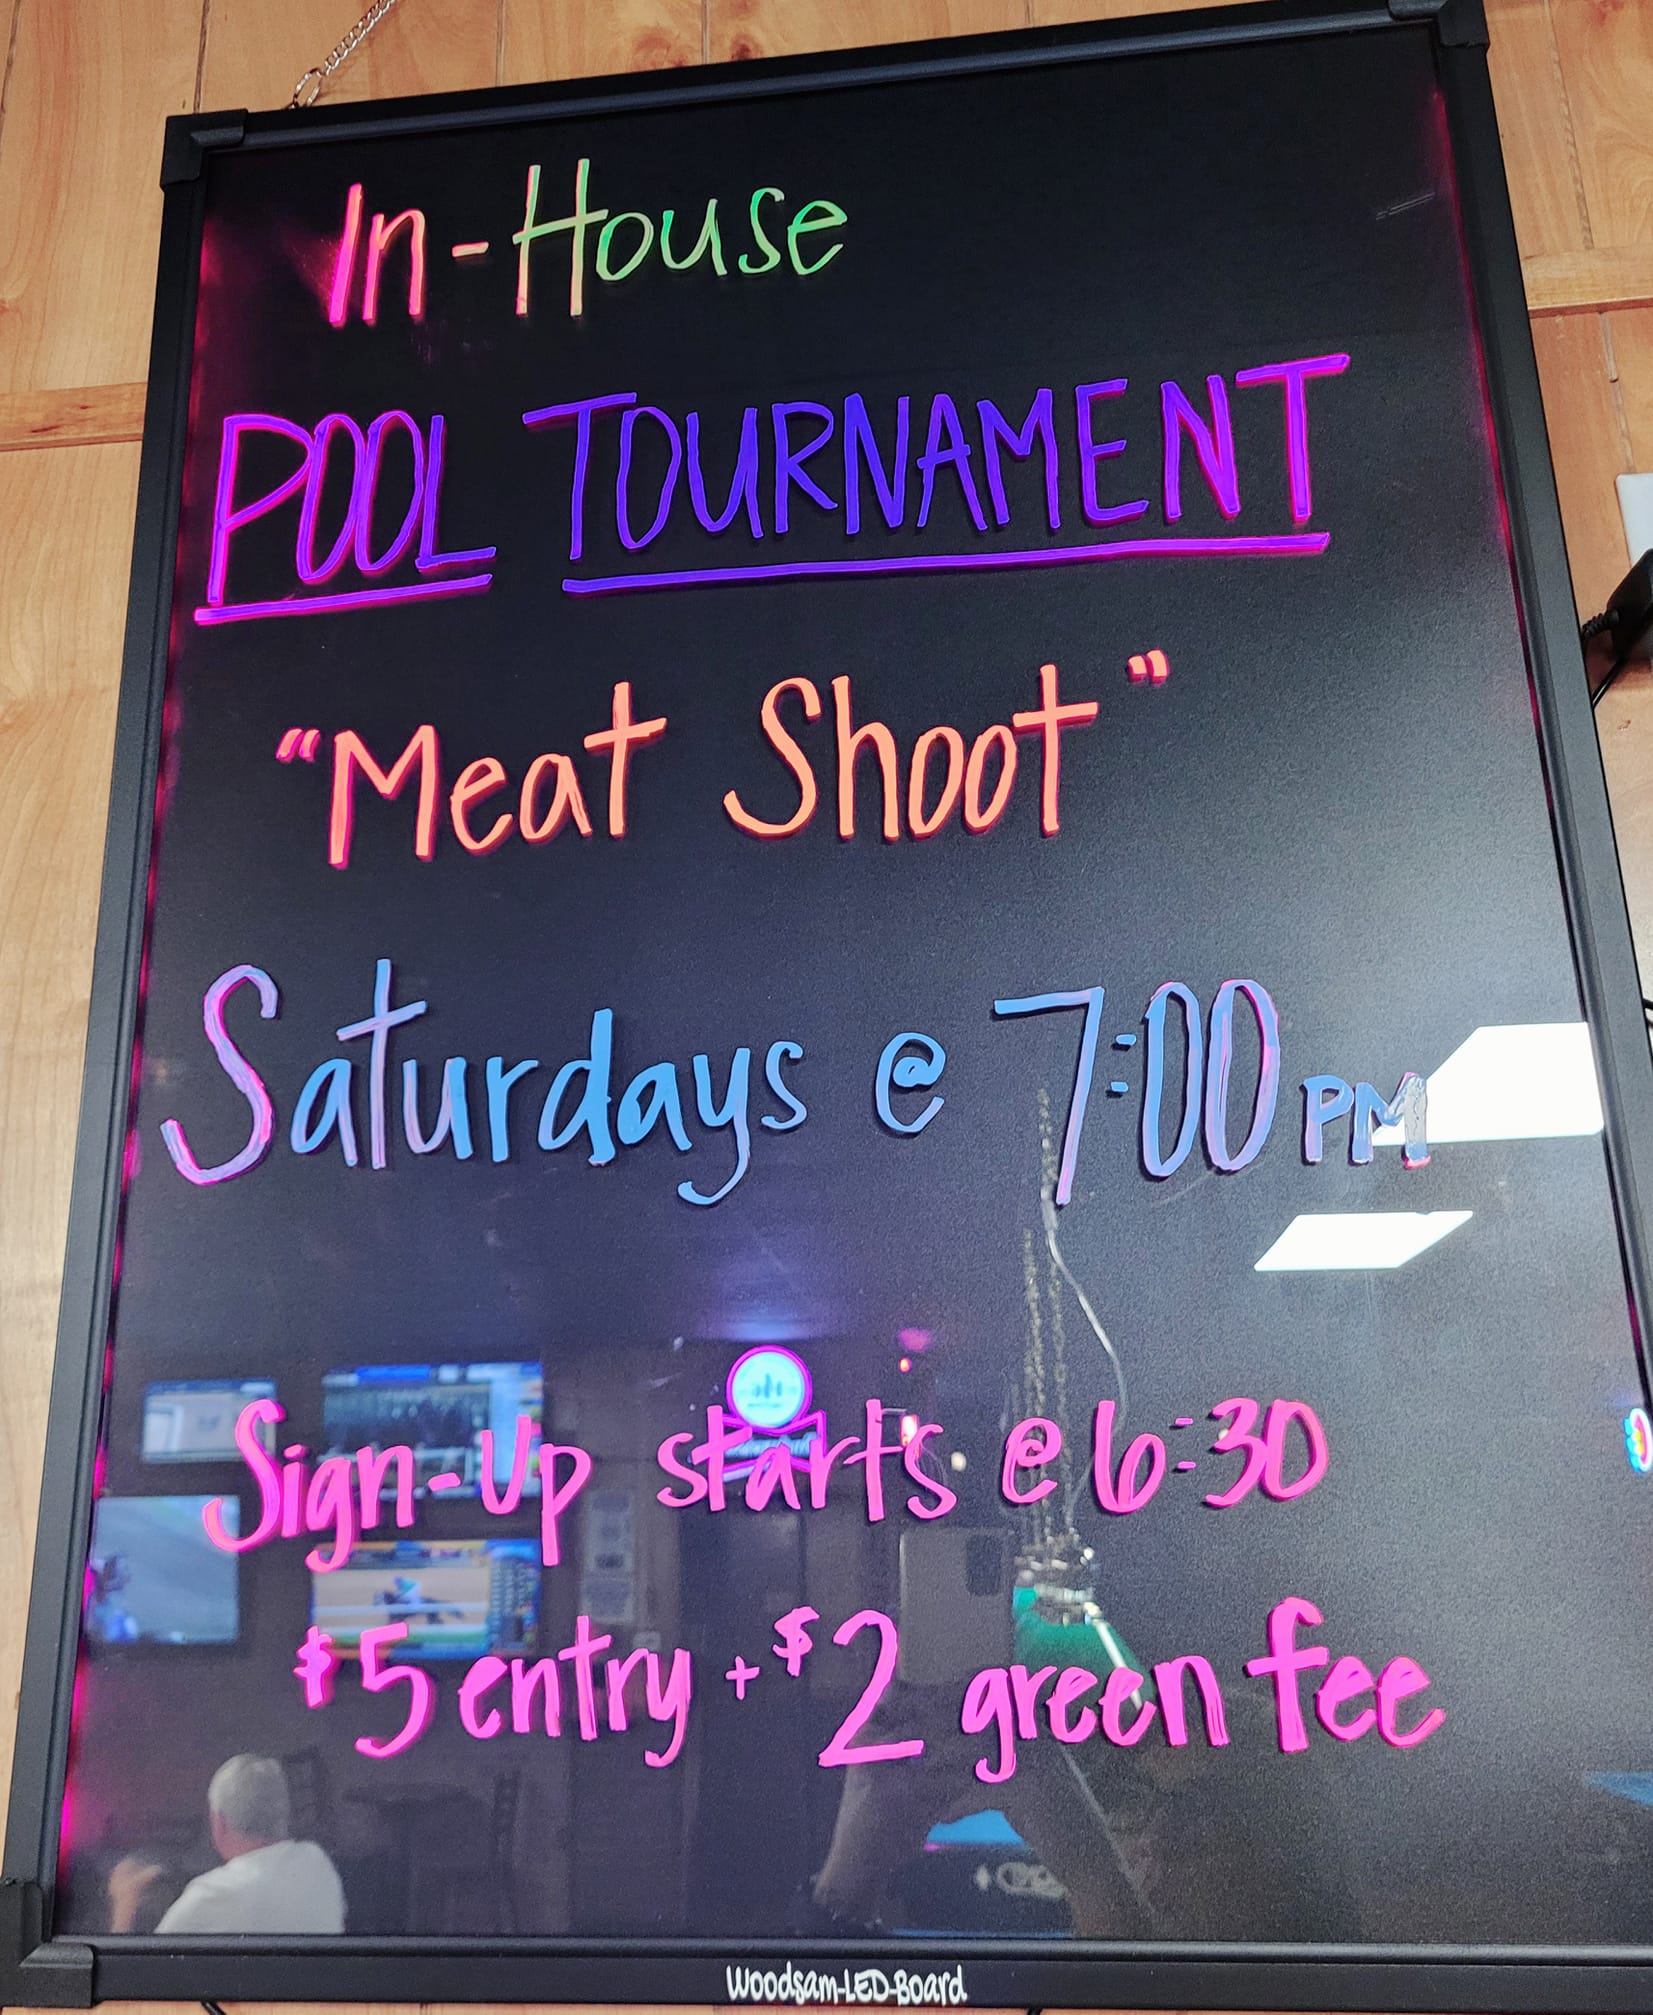 In-House
POOL TOURNAMENT
"Meat Shoot"
Saturdays @ 7:00 PM
Sign-Up starts @ 6:30
$5 entry + $2 green fee
Woodsam-LED-Board